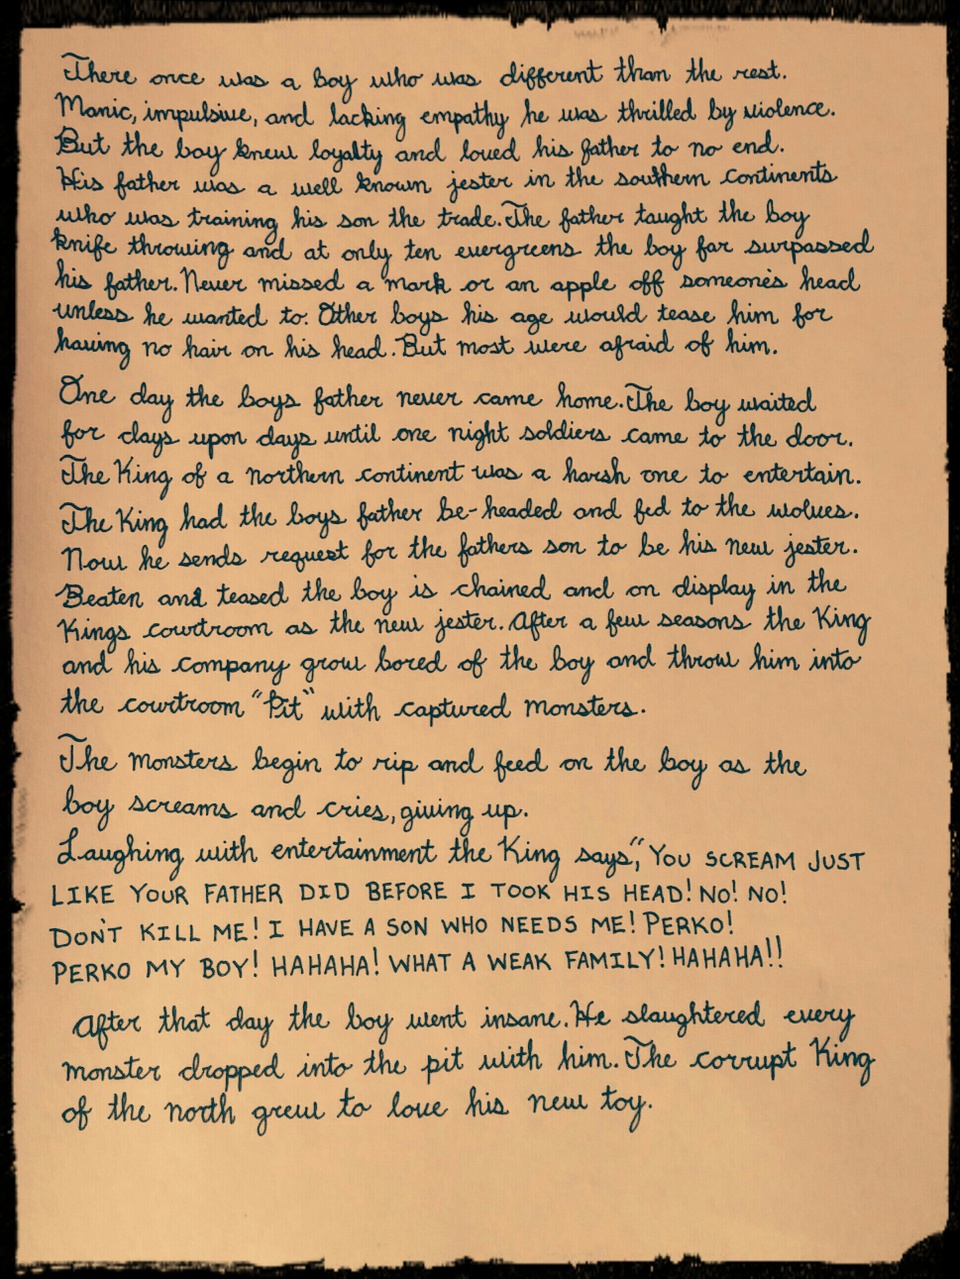 There once was a boy who was different than the rest.
Manic, impulsive, and lacking empathy he was thrilled by violence.
But the boy knew loyalty and loved his father to no end.
His father was a well known jester in the southern continents
who was training his son the trade. The father taught the boy
knife throwing and at only ten evergreens the boy far surpassed
his father. Never missed a mark or an apple off someone's head
unless he wanted to. Other boys his age would tease him for
having no hair on his head. But most were afraid of him.
One day the boys father never came home. The boy waited
for days upon days until one night soldiers came to the door.
The King of a northern continent was a harsh one to entertain.
The King had the boys father be-headed and fed to the wolves.
Now he sends request for the fathers son to be his new jester.
Beaten and teased the boy is chained and on display in the
Kings courtroom as the new jester. After a few seasons the King
and his company grow bored of the boy and throw him into
the courtroom "Pit" with captured monsters.
The monsters begin to rip and feed on the boy as the
boy screams and cries, giving up.
Laughing with entertainment the King says", YOU SCREAM JUST
LIKE YOUR FATHER DID BEFORE I TOOK HIS HEAD! NO! NO!
DON'T KILL ME! I HAVE A SON WHO NEEDS ME! PERKO!
PERKO MY BOY! HAHAHA! WHAT A WEAK FAMILY! HAHAHA!!
After that day the boy went insane. He slaughtered every
monster dropped into the pit with him. The corrupt King
of the north grew to love his new toy.